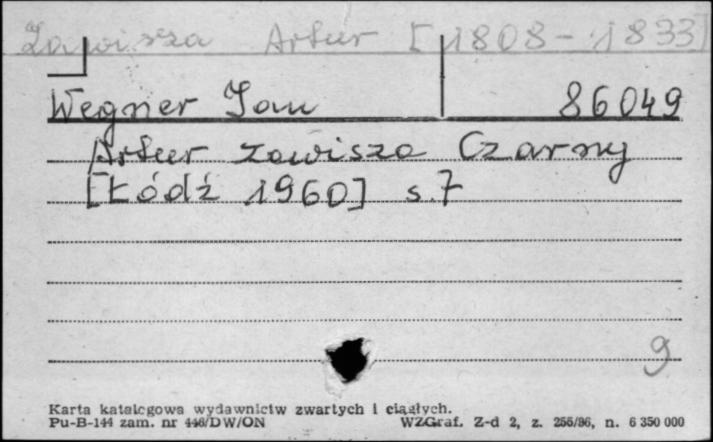 Zawisza Artur [1808-1833]
Wegner Jan 86049
Artur Zawisza Czarny
[Łódź 1960] s.7
9
Karta katalogowa wydawnictw zwartych i ciągłych.
Pu-B-144 zam. nr 446/DW/ON WZGraf. Z-d 2, z. 256/86, n. 6 350 000